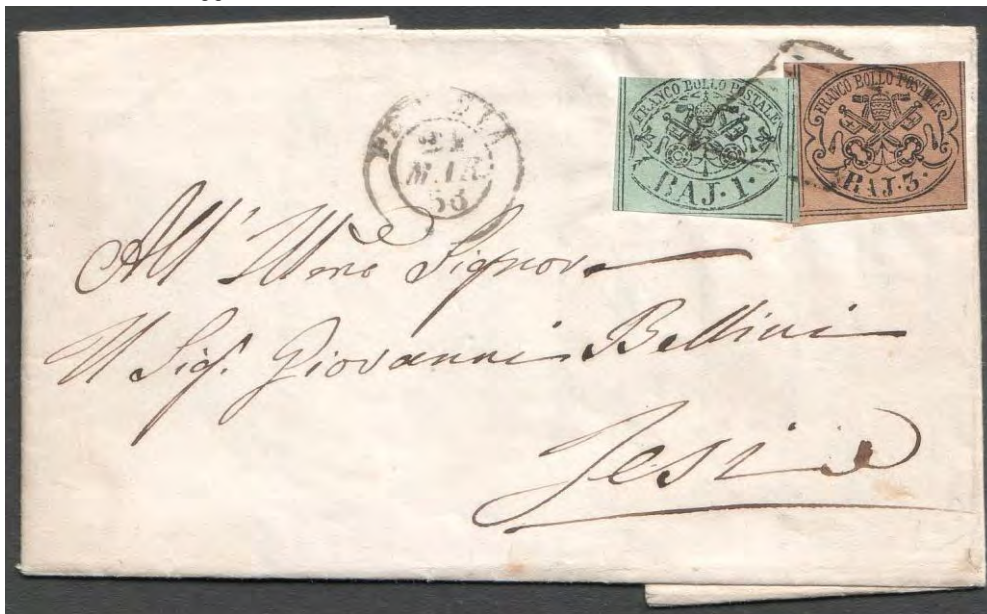 FRANCO BOLLO POSTALE
BAJ. 1.
FRANCO BOLLO POSTALE
BAJ. 3.
MAR
All' Illmo Signore
Il Sig. Giovanni Bellini
Jesi